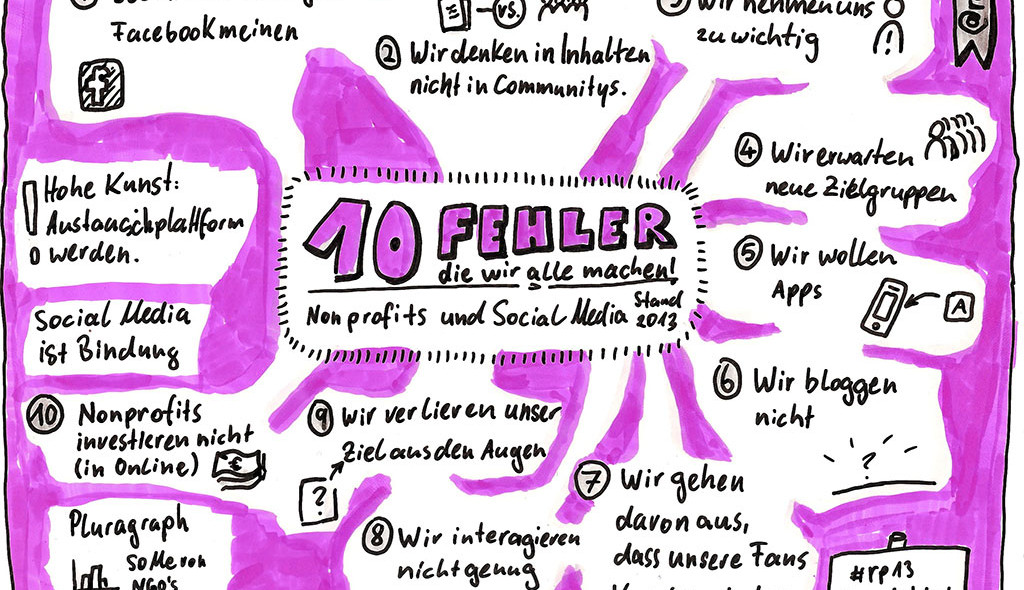 Facebook meinen
f
vs.
② Wir denken in Inhalten
nicht in Communitys.
③ Wir nehmen uns
zu wichtig
@
④ Wir erwarten
neue Zielgruppen
⑤ Wir wollen
Apps
A
⑥ Wir bloggen
nicht
?
⑦ Wir gehen
davon aus,
dass unsere Fans
#rp13
⑧ Wir interagieren
nicht genug
⑨ Wir verlieren unser
Ziel aus den Augen
?
⑩ Nonprofits
investieren nicht
(in Online)
€
Pluragraph
SoMe von
NGO's
! Hohe Kunst:
Austauschplattform
werden.
Social Media
ist Bindung
10 FEHLER
die wir alle machen!
Nonprofits und Social Media Stand
2013